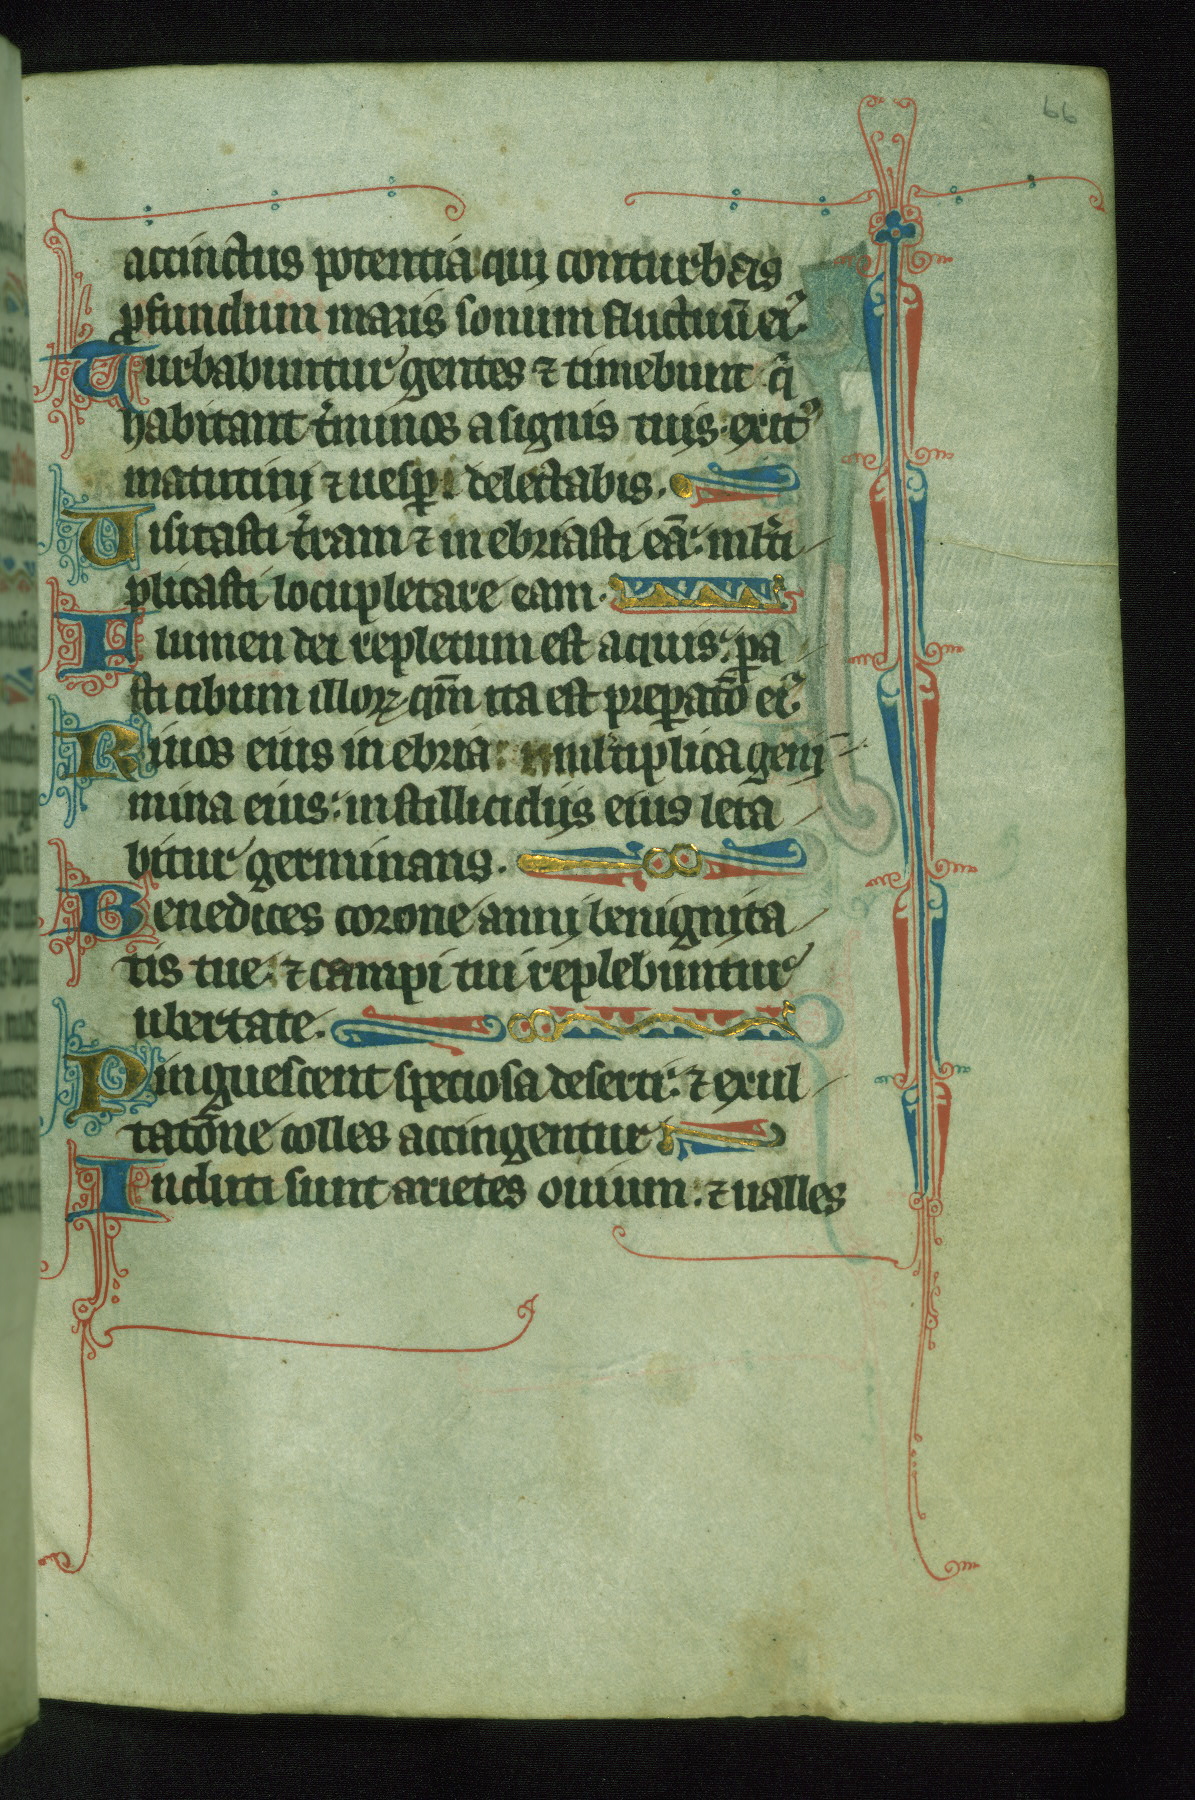 66
accinctus potentia qui conturbas
ꝓfundum maris sonum fluctuū eiꝰ
Turbabuntur gentes ⁊ timebunt qͥ
habitant t̓minos a signis tuis exitꝰ
matutini ⁊ uesꝑi delectabis.
Uisitasti t̓ram ⁊ inebriasti eā: ml̓ti
plicasti locupletare eam.
Flumen dei repletum est aquis: pa
sti cibum illoꝝ qm̄ ita est preparat̄o eiꝰ
Riuos eius inebria: multiplica geni
mina eius: in stillicidijs eius leta
bitur germinans.
Benedices corone anni benignita
tis tue: ⁊ campi tui replebuntur
ubertate.
Pinguescent speciosa deserti: ⁊ exul
tat̄one colles accingentur
Induti sunt arietes ouium: ⁊ ualles